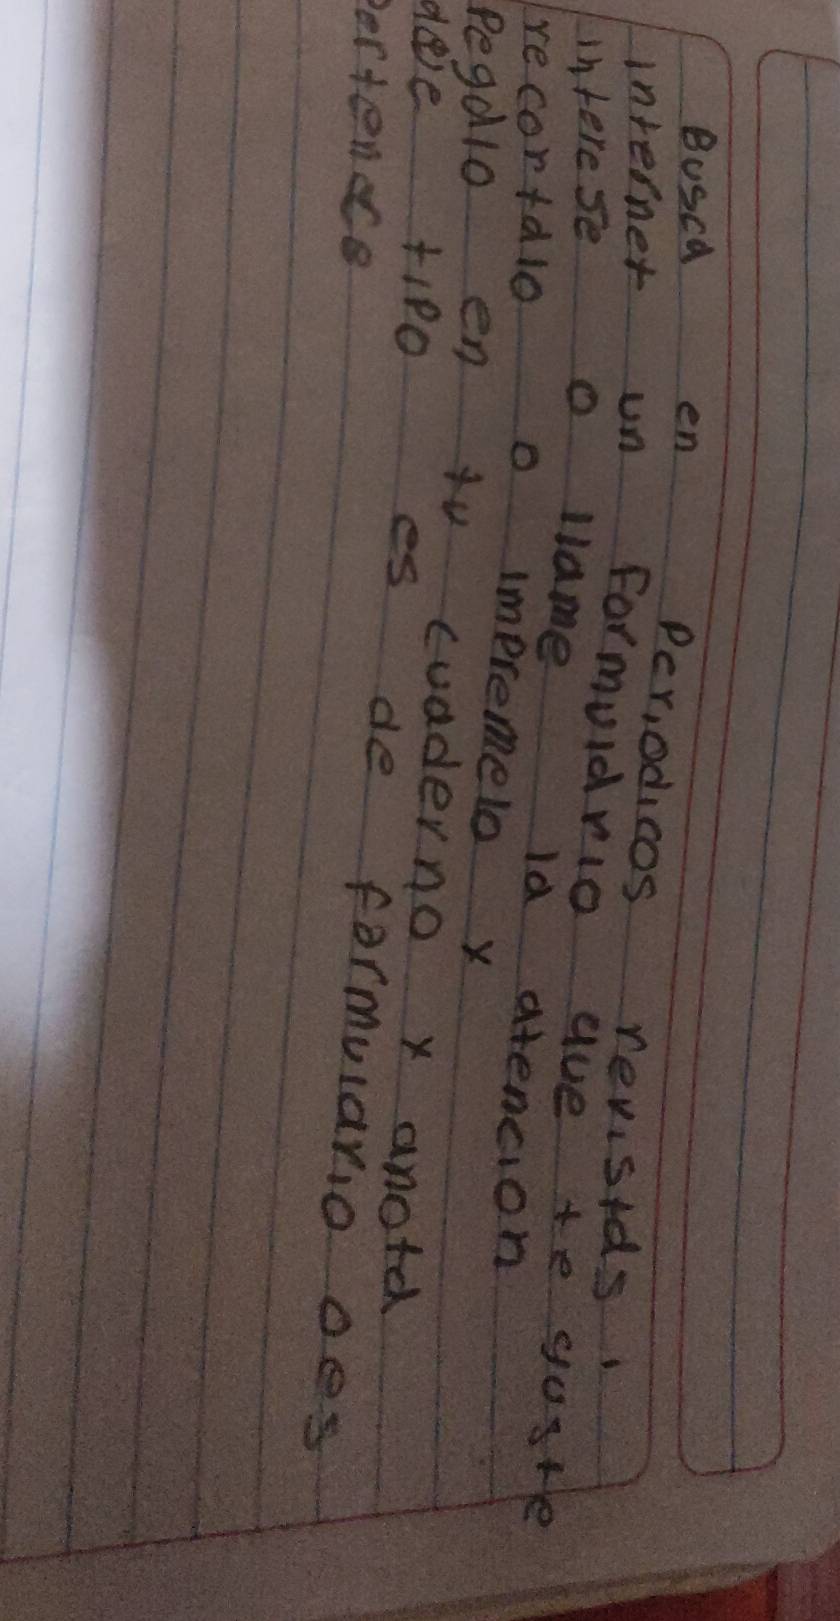 Busca en Periodicos revistas,
internet un formulario que te guste
interese o llame la atencion
recortalo o impremelo y
Pegalo en tu cuaderno y anota
que tipo es de formulario o es
Pertenece